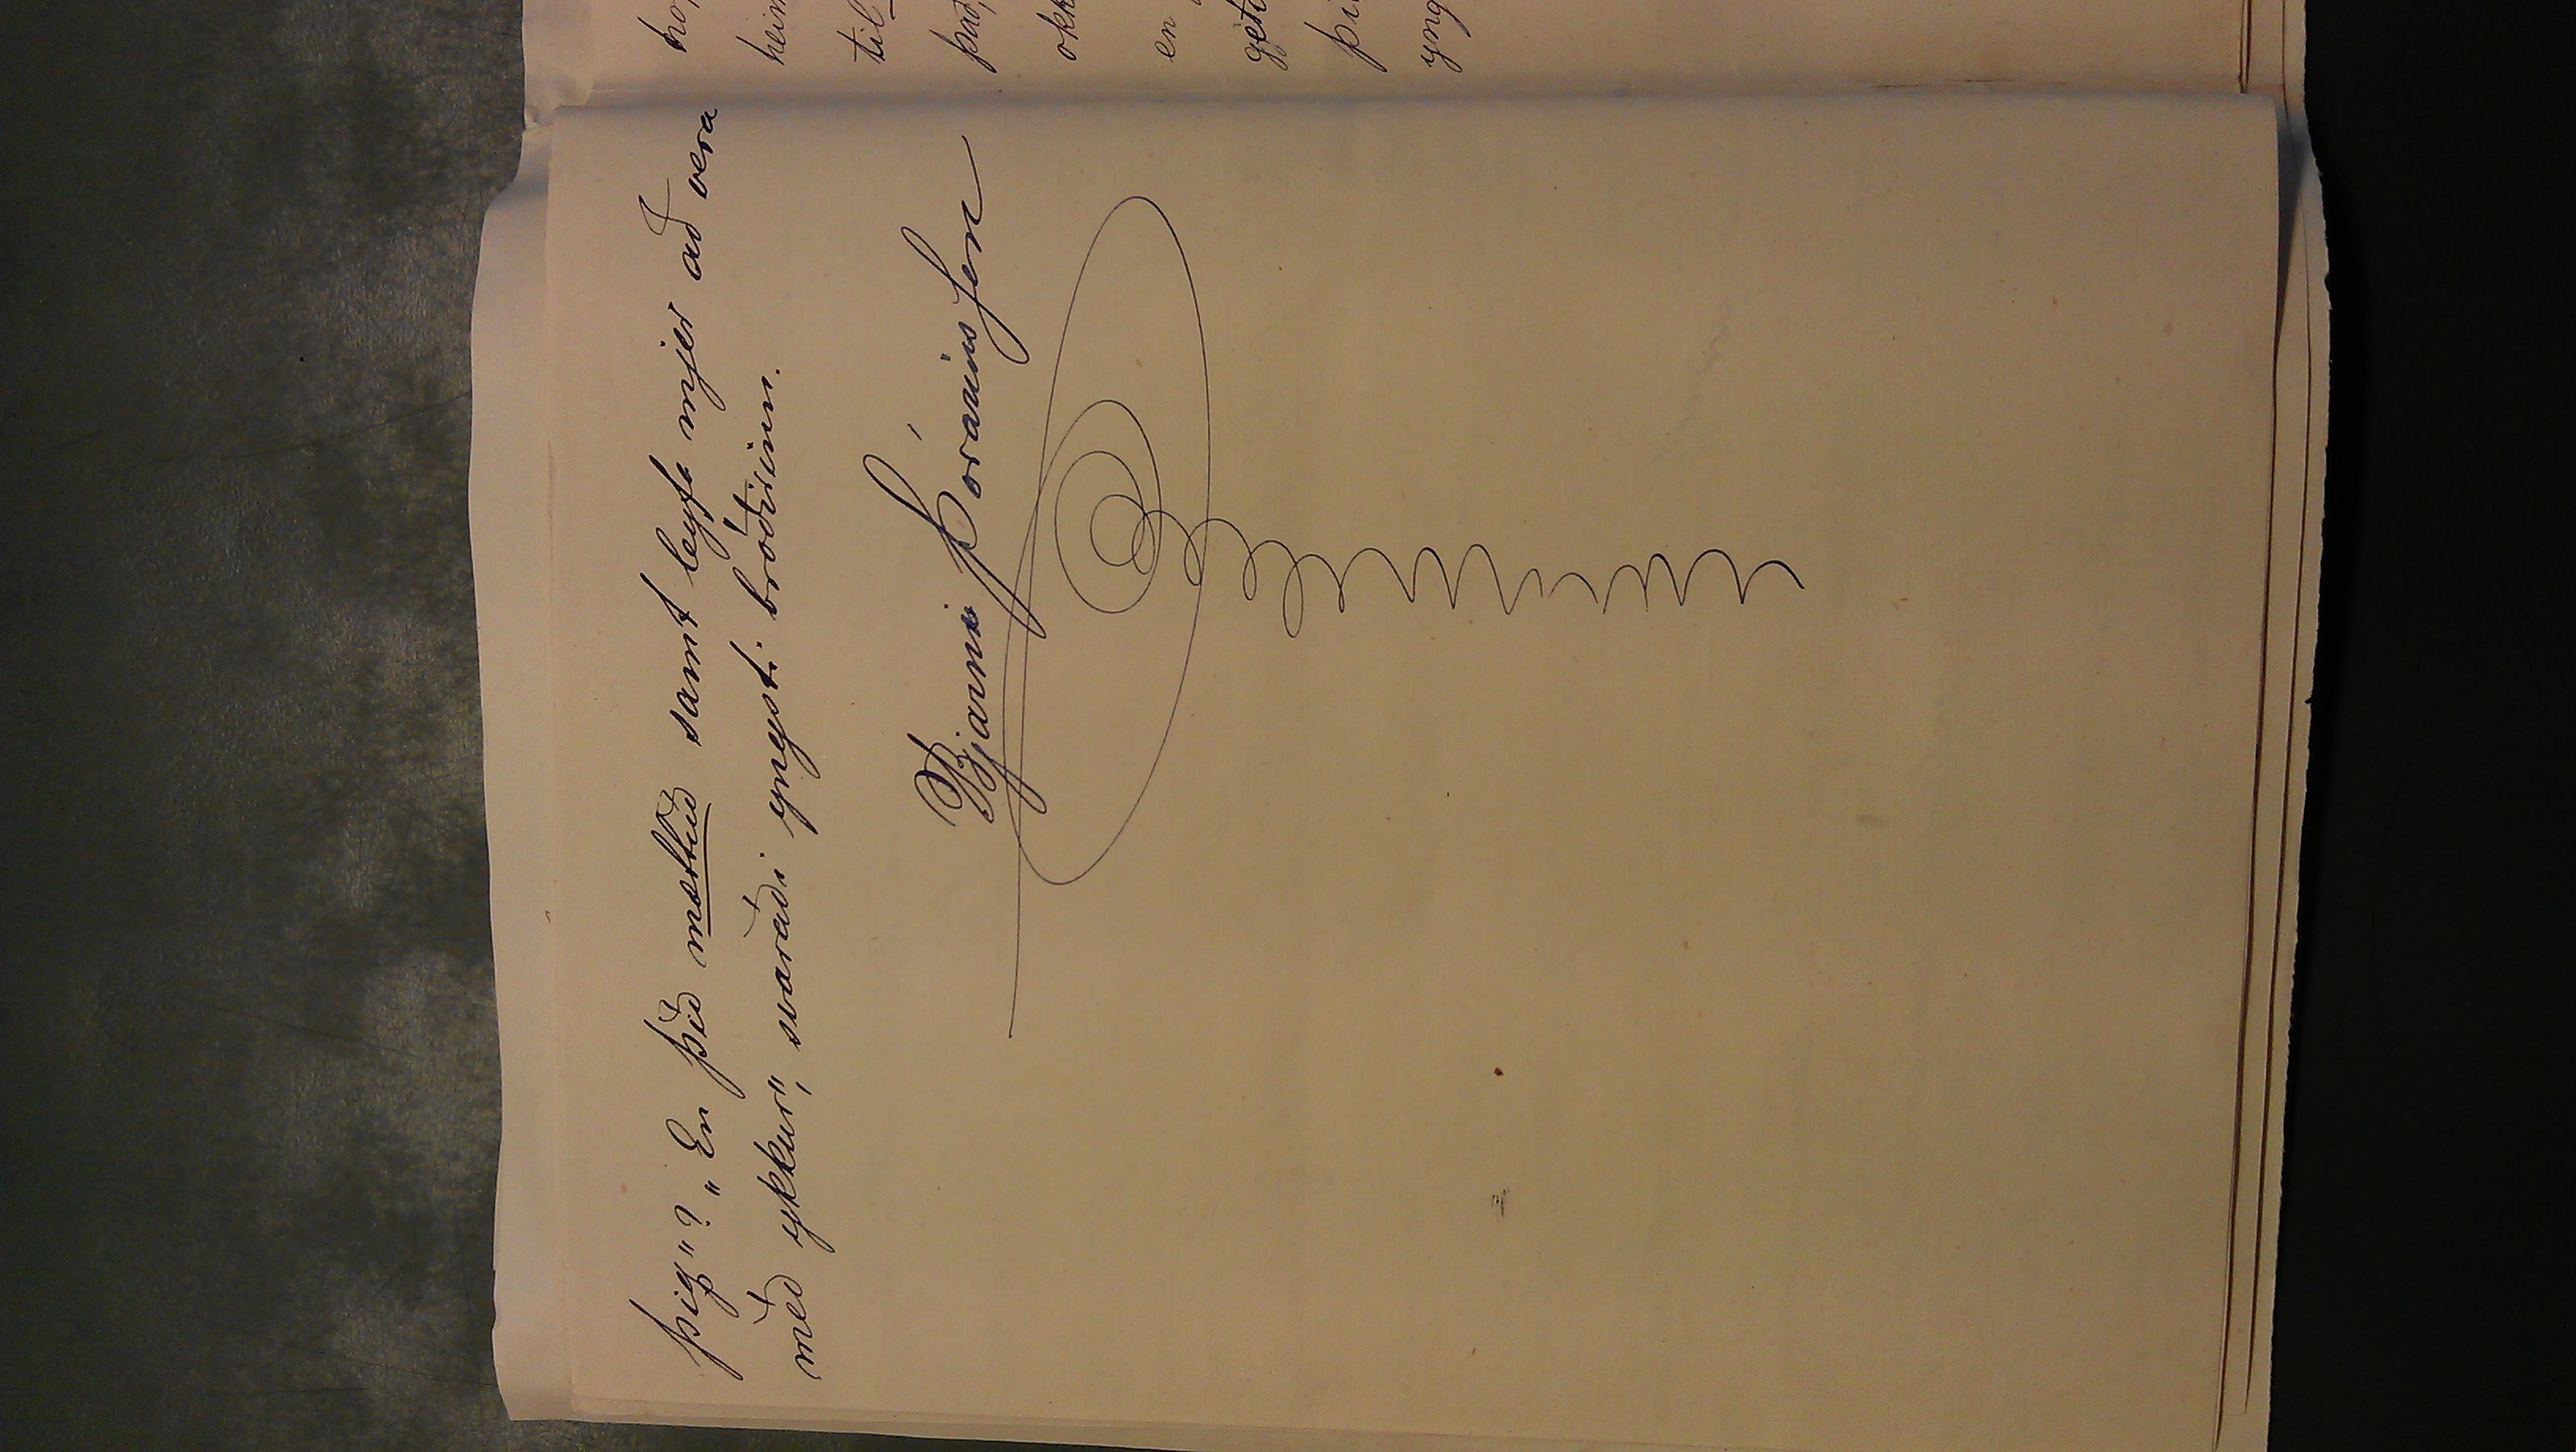 þig"? „En þið mættuð samt leyfa mjer að vera
með ykkur", svaraði yngsti bróðirinn.
Bjarni Þórarinsson
til
það,
okk
en
get
þi
yng